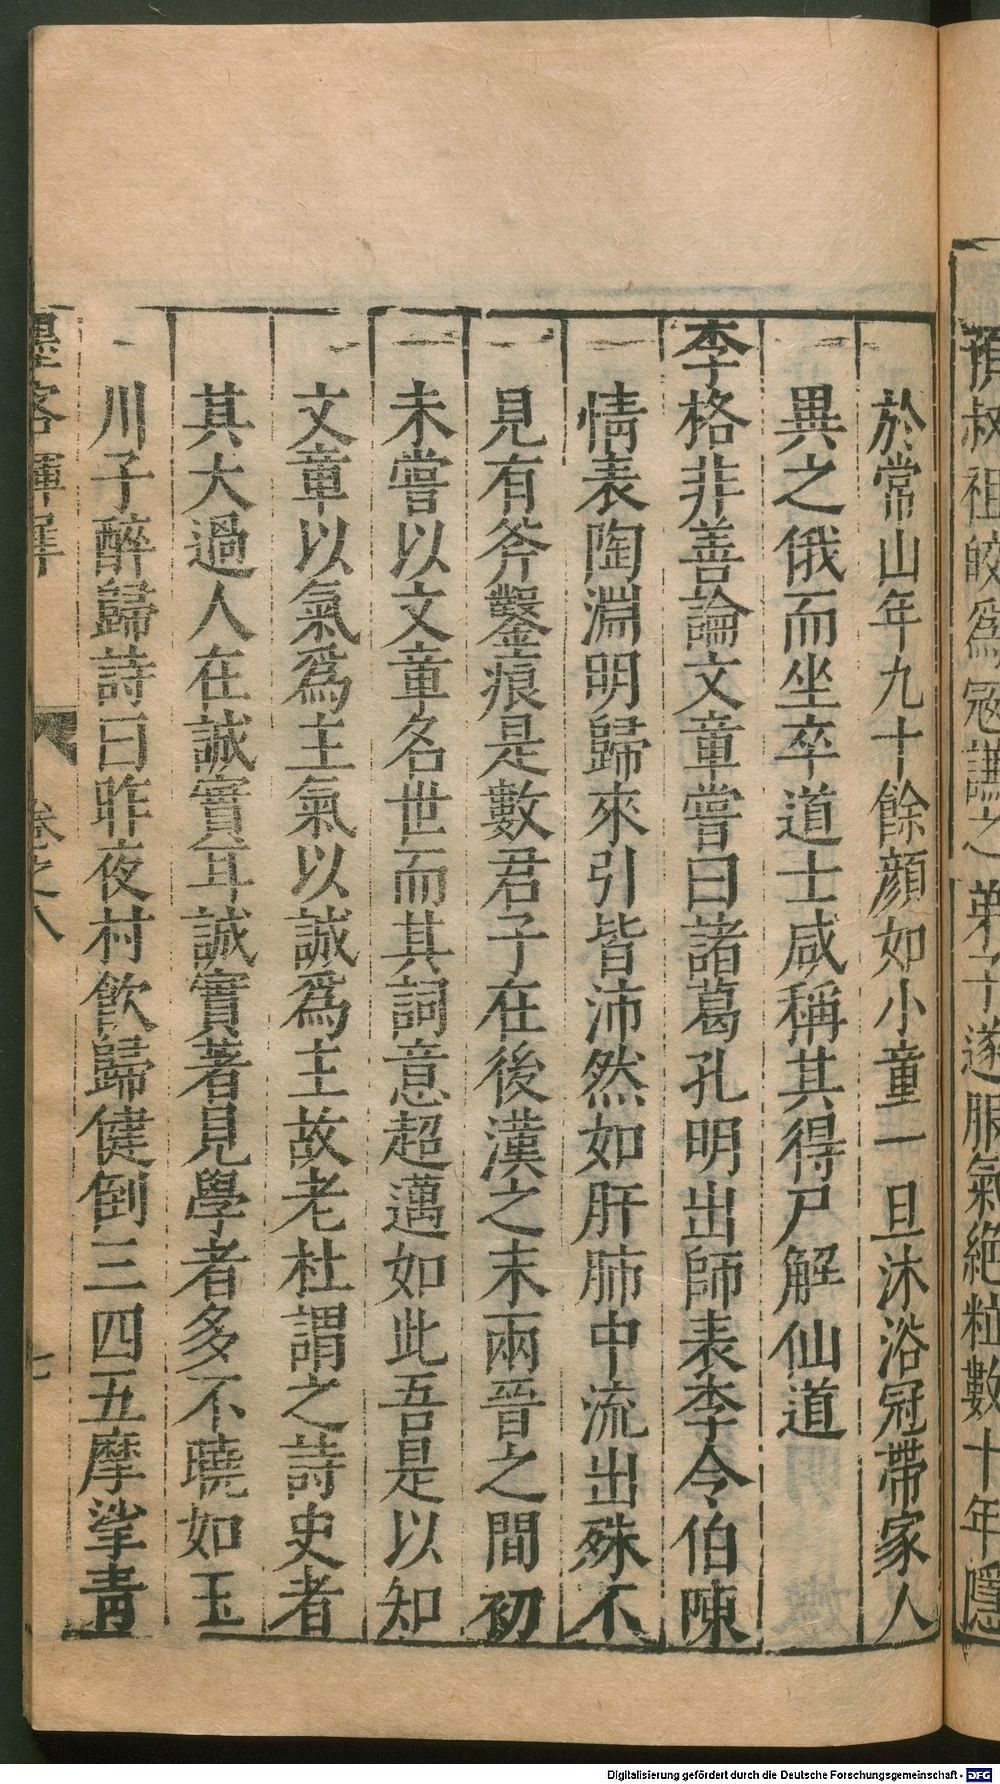 預叔祖皎爲冦謙之弟子遂服氣絶粒數十年隱
於常山年九十餘顔如小童一旦沐浴冠帶家人
異之俄而坐卒道士咸稱其得尸解仙道
李格非善論文章嘗曰諸葛孔明出師表李令伯陳
情表陶淵明歸來引皆沛然如肝肺中流出殊不
見有斧鑿痕是數君子在後漢之末兩晉之間初
未嘗以文章名世而其詞意超邁如此吾是以知
文章以氣爲主氣以誠爲主故老杜謂之詩史者
其大過人在誠實耳誠實著見學者多不曉如玉
川子醉歸詩曰昨夜村飲歸健倒三四五摩挲青
墨客揮犀
卷之八
七
Digitalisierung gefördert durch die Deutsche Forschungsgemeinschaft - DFG